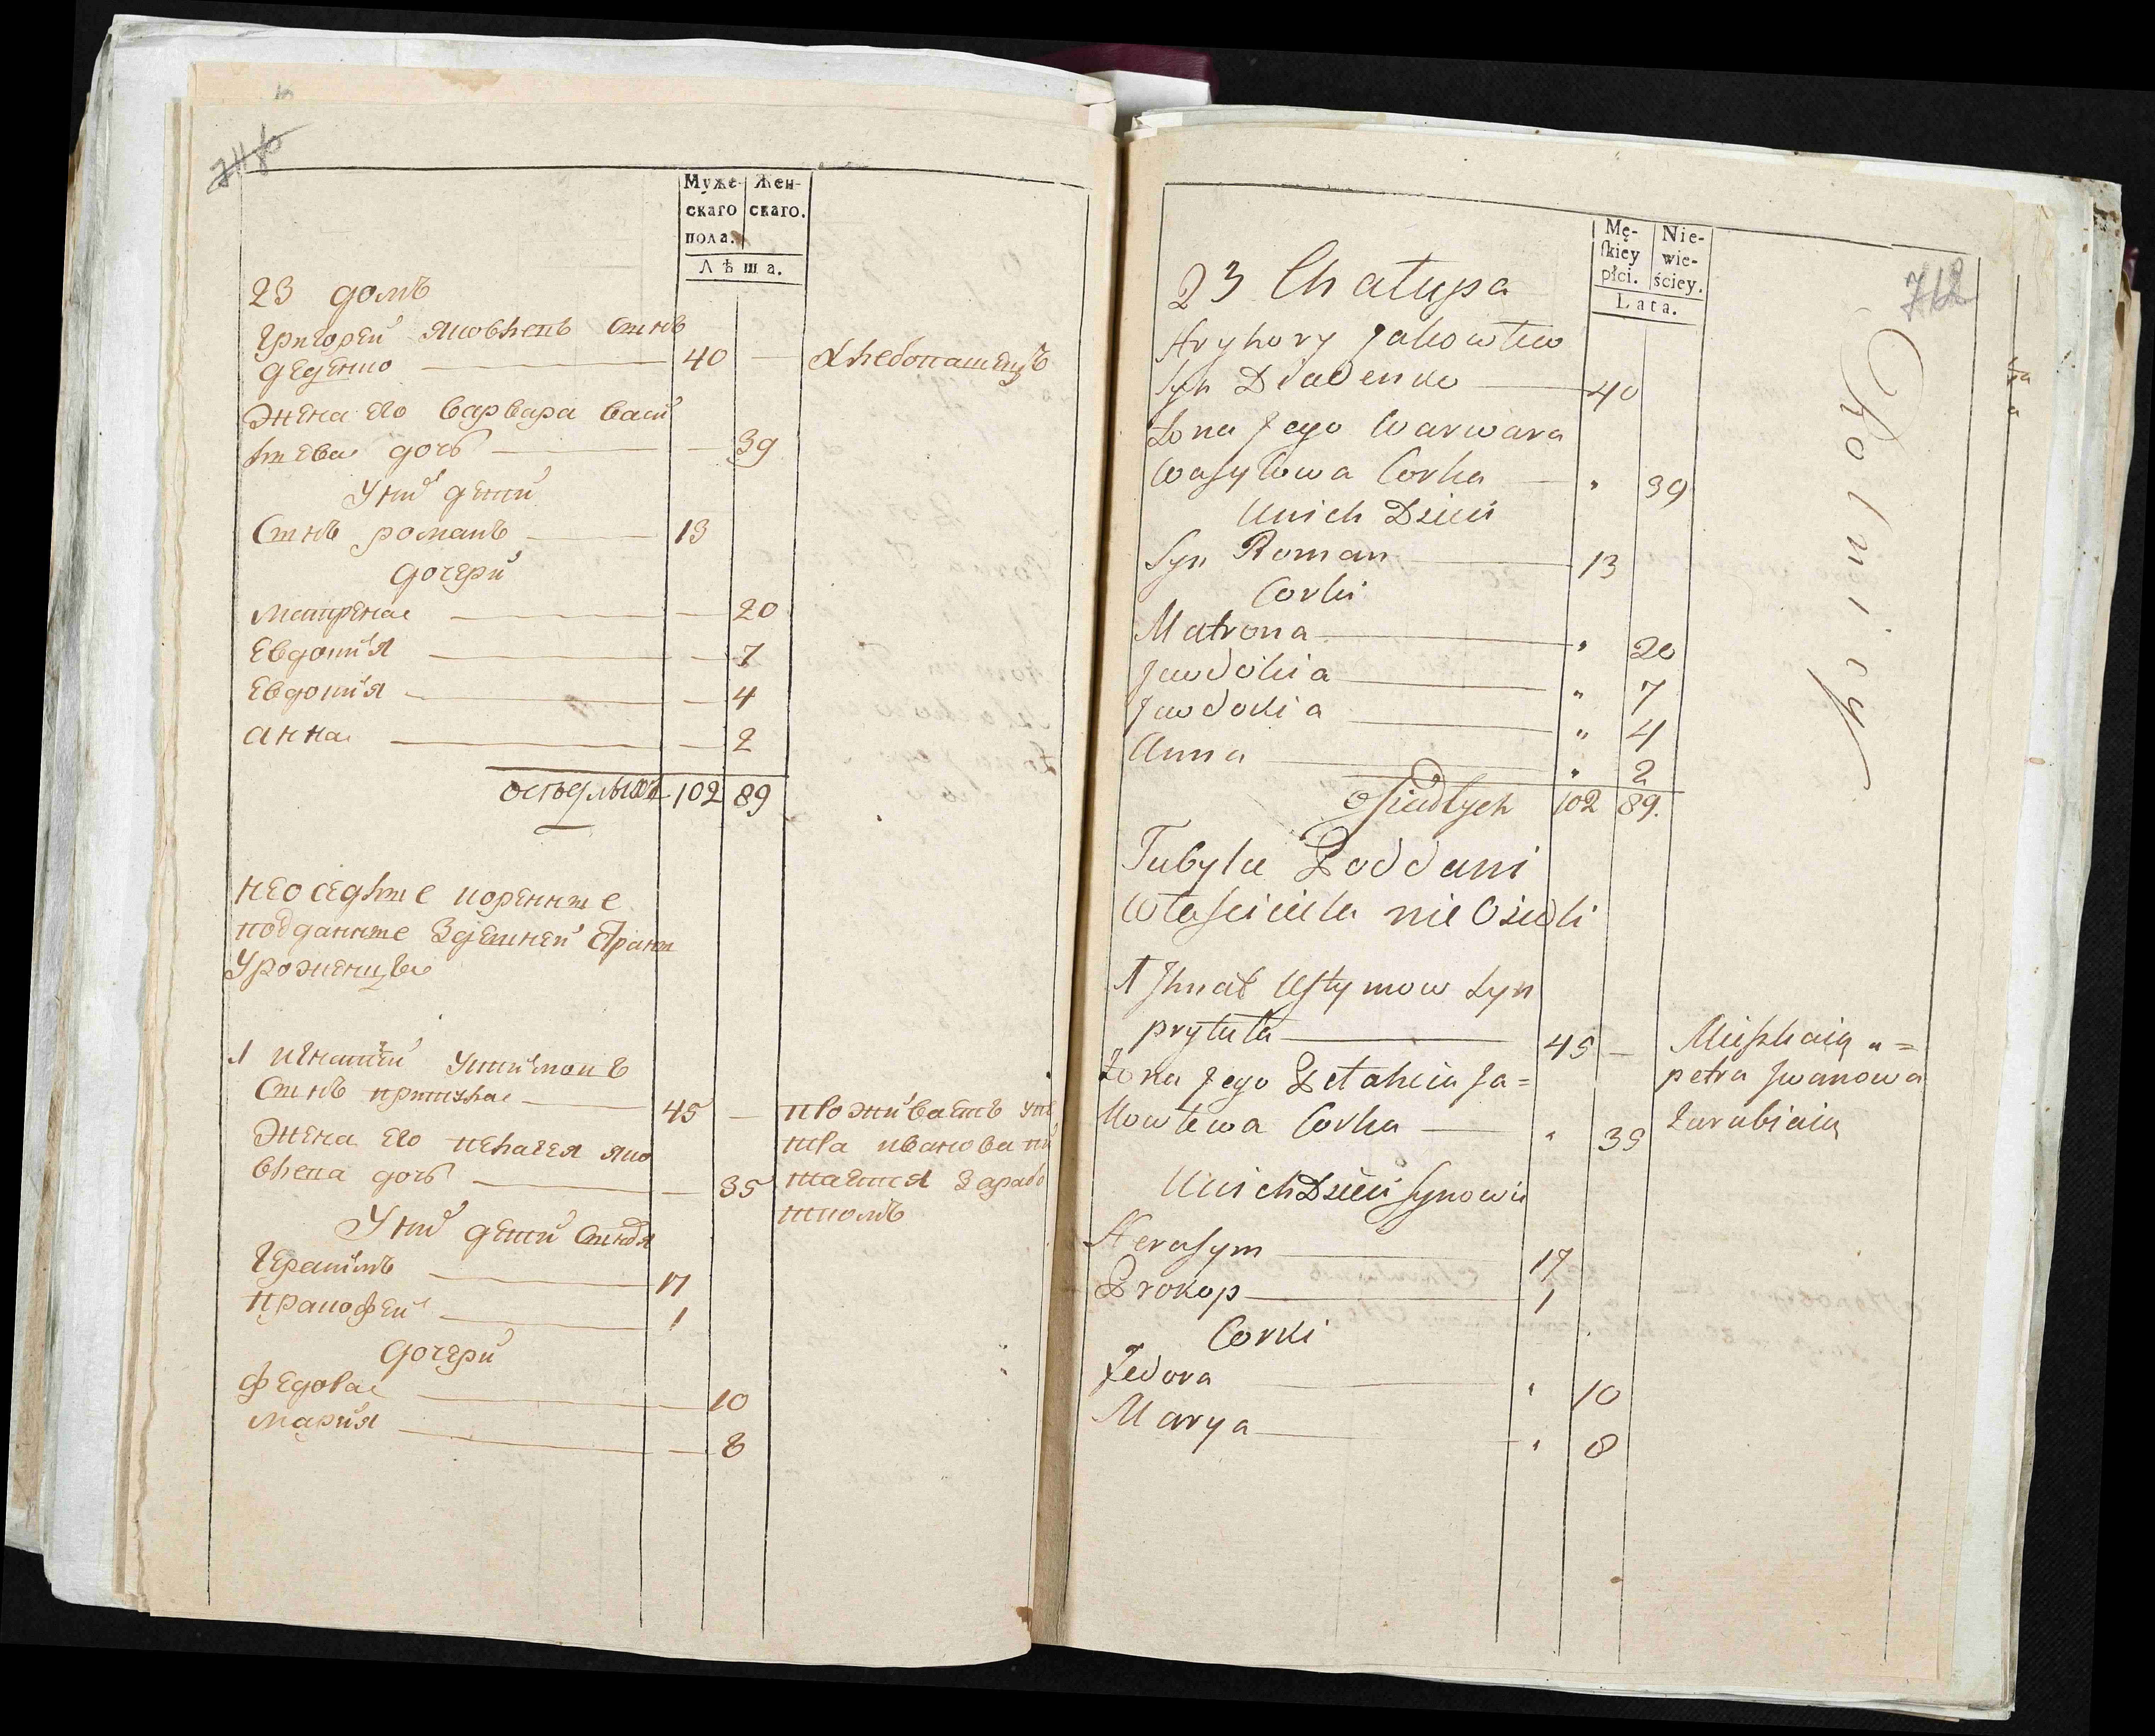 Муже-
скаго
пола.
Жен-
скаго.
Лѣта.
23 домъ
Григорей Яковлевъ сынъ
деденко 40 — хлебопашецъ
Жена его варвара васи
лиева дочь — 39
У них дети
Сынъ романъ 13
дочери
матрена — 20
Евдокия — 7
Евдокия — 4
анна — 2
оседлыхъ 102 89
неоседлые коренные
подданные здешней
Уроженцы
1 игнатий Устимовъ
Сынъ притула 45 — проживаетъ у пе
тра иванова пи
Жена его пелагея яко
влева дочь — 35 таится зарабо
ткомъ
У них дети Сыновья
Герасимъ 17
Пракофей 1
дочери
федора — 10
мария — 8
712
Mę-
skiey
płci.
Nie-
wie-
ściey.
Lata.
23 Chałupa
Hryhory Jakowlew
Syn Diadenko 40
Rolnicy
Żona Jego Warwara
Wasylowa Corka " 39
U nich Dzieci
Syn Roman 13
Corki
Matrona " 20
Jewdokia " 7
Jewdokia " 4
Anna " 2
Osiadłych 102 89.
Tubylce Poddani
Własciciela nie Osiedli
1 Ihnat Ustymow Syn
prytuła 45 — Mieszkaią u =
petra Jwanowa
Żona Jego Pelaheia Ja=
kowlewa Corka " 35 Zarabiaią
U nich Dzieci Synowie
Herasym 17
Prokop 1
Corki
Fedora " 10
Marya " 8